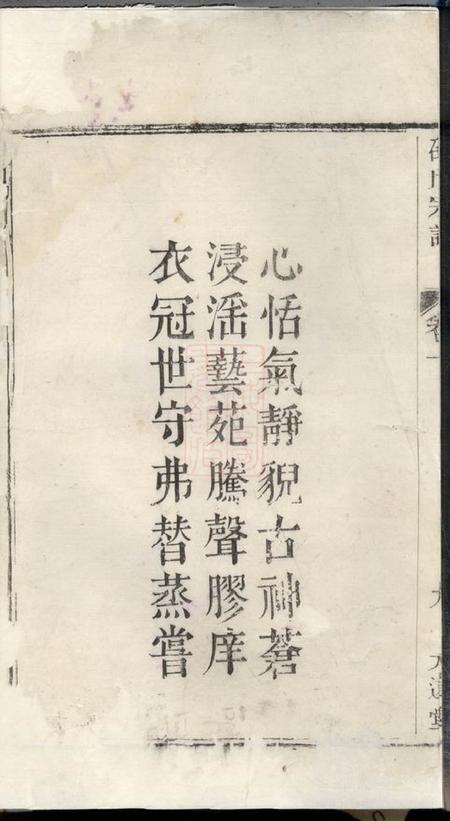 心恬氣靜貌古神蒼
浸滛藝苑騰聲膠庠
衣冠世守弗替蒸嘗
卷一